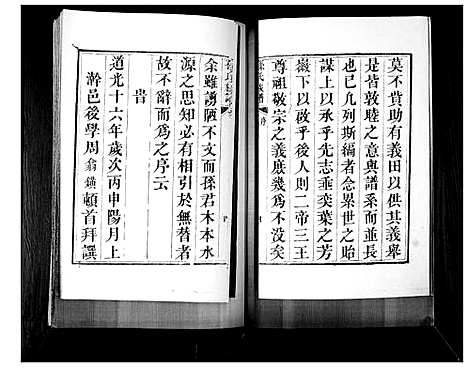 莫不貲助有義田以供其義舉
是皆敦睦之意與譜系而並長
也已凡列斯編者念累世之貽
謀上以承乎先志垂奕葉之芳
徽下以啟乎後人則二帝三王
尊祖敬宗之義庶幾爲不淩矣
余雖謭陋無文而孫君木本水
源之思知必有相引於無替者
故不辭而爲之序云
旹
道光十六年歲次丙申陽月上
澣邑後學周翁鐄頓首拜譔